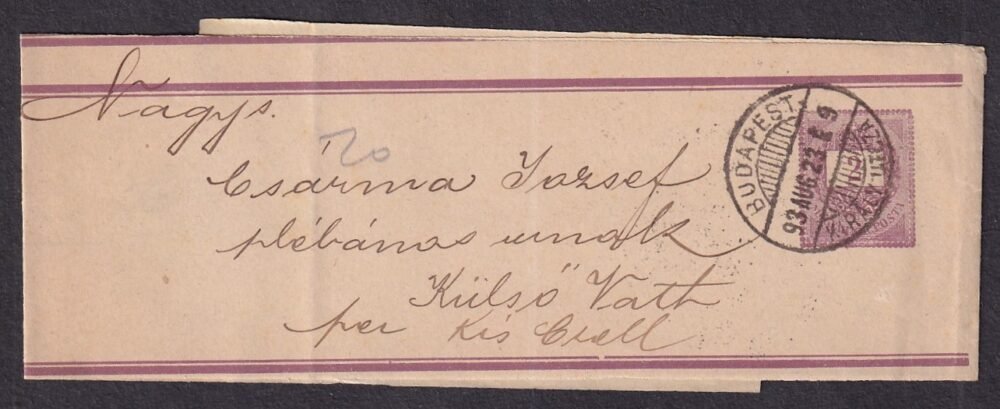 Nagys.
20
Csárma Jozsef
plébános urnak
Külső Vath
per Kis Czell
BUDAPEST
93 AUG. 23. E 9
POSTA